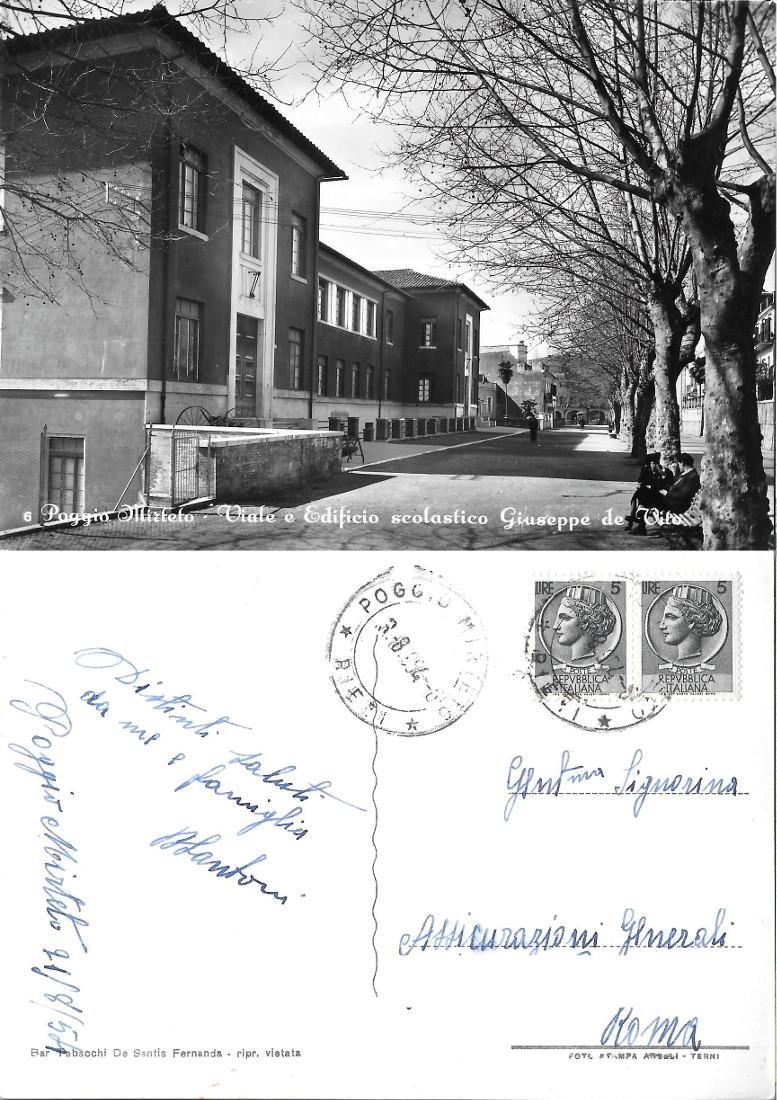 6 Poggio Mirteto - Viale e Edificio scolastico Giuseppe de Vito
POGGIO MIRTETO
★ RIETI ★
LIRE 5
POSTE
REPVBBLICA
ITALIANA
LIRE 5
POSTE
REPVBBLICA
ITALIANA
Distinti saluti
da me e famiglia
Poggio Mirteto 21/8/54
Gent.ma Signorina
Assicurazioni Generali
Roma
Bar Tabacchi De Santis Fernanda - ripr. vietata
FOTO STAMPA - TERNI